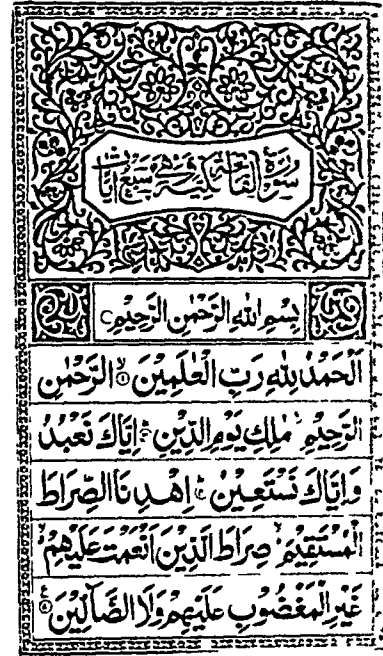 سورة الفاتحة مكية وهي سبع آيات
بِسْمِ اللهِ الرَّحْمٰنِ الرَّحِيْمِ
اَلْحَمْدُ لِلّٰهِ رَبِّ الْعٰلَمِيْنَ ۙ۝۱ الرَّحْمٰنِ
الرَّحِيْمِ ۙ مٰلِكِ يَوْمِ الدِّيْنِ ؕ اِيَّاكَ نَعْبُدُ
وَ اِيَّاكَ نَسْتَعِيْنُ ؕ اِهْدِ نَا الصِّرَاطَ
الْمُسْتَقِيْمَ ۙ صِرَاطَ الَّذِيْنَ اَنْعَمْتَ عَلَيْهِمْ ۙ
غَيْرِ الْمَغْضُوْبِ عَلَيْهِمْ وَلَا الضَّآلِّيْنَ